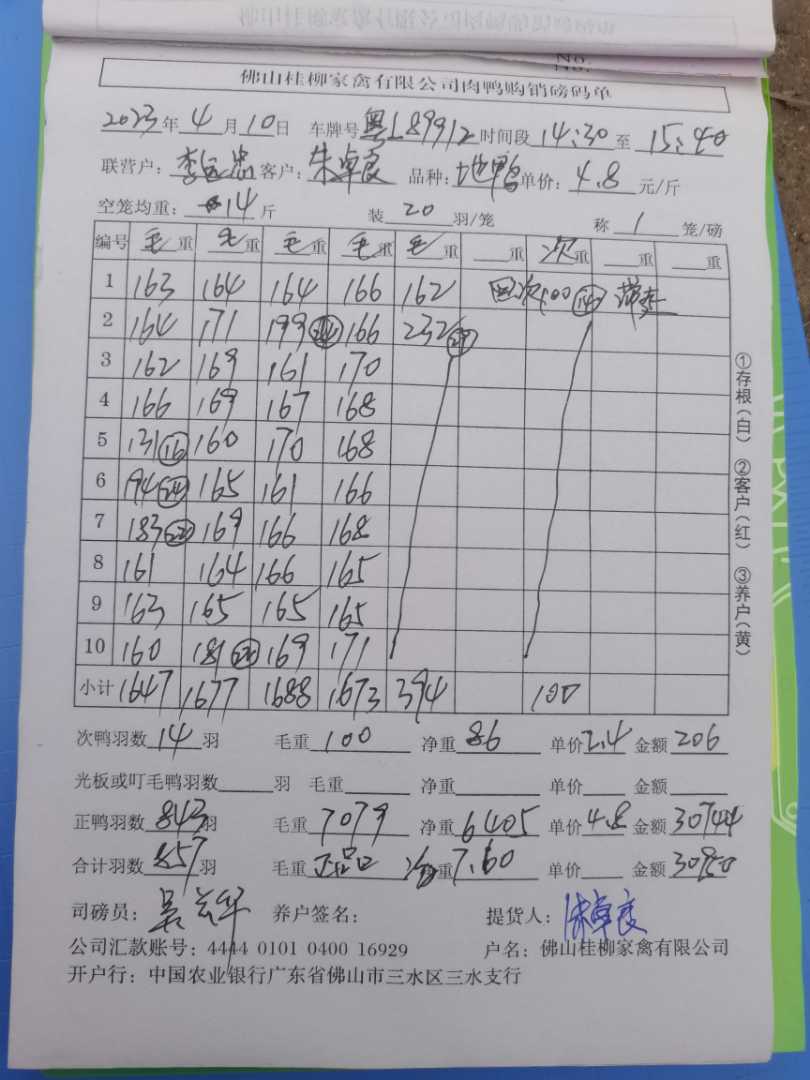 佛山桂柳家禽有限公司肉鸭购销磅码单
2023年 4 月 10日 车牌号 粤L89912 时间段 14:30 至 15:40
联营户: 客户: 朱卓良 品种: 地鸭 单价: 4.8 元/斤
空笼均重: 14 斤 装 20 羽/笼 称 1 笼/磅
编号 毛重 毛重 毛重 毛重 毛重 重 次重 重 重
1 163 164 164 166 162 次100 (14)
2 164 171 199 (24) 166 232 (29)
3 162 169 161 170
4 166 169 167 168
5 131 (16) 160 170 168
6 194 (24) 165 161 166
7 183 169 166 168
8 161 164 166 165
9 163 165 165 165
10 160 181 169 171
小计 1647 1677 1688 1673 394 100
次鸭羽数 14 羽 毛重 100 净重 86 单价 2.4 金额 206
光板或叮毛鸭羽数 羽 毛重 净重 单价 金额
正鸭羽数 843 羽 毛重 7079 净重 6405 单价 4.8 金额 30744
合计羽数 857 羽 毛重 正品口 净重 7.60 单价 金额 30950
司磅员: 养户签名: 提货人: 朱卓良
公司汇款账号: 4444 0101 0400 16929 户名: 佛山桂柳家禽有限公司
开户行: 中国农业银行广东省佛山市三水区三水支行
①存根(白) ②客户(红) ③养户(黄)